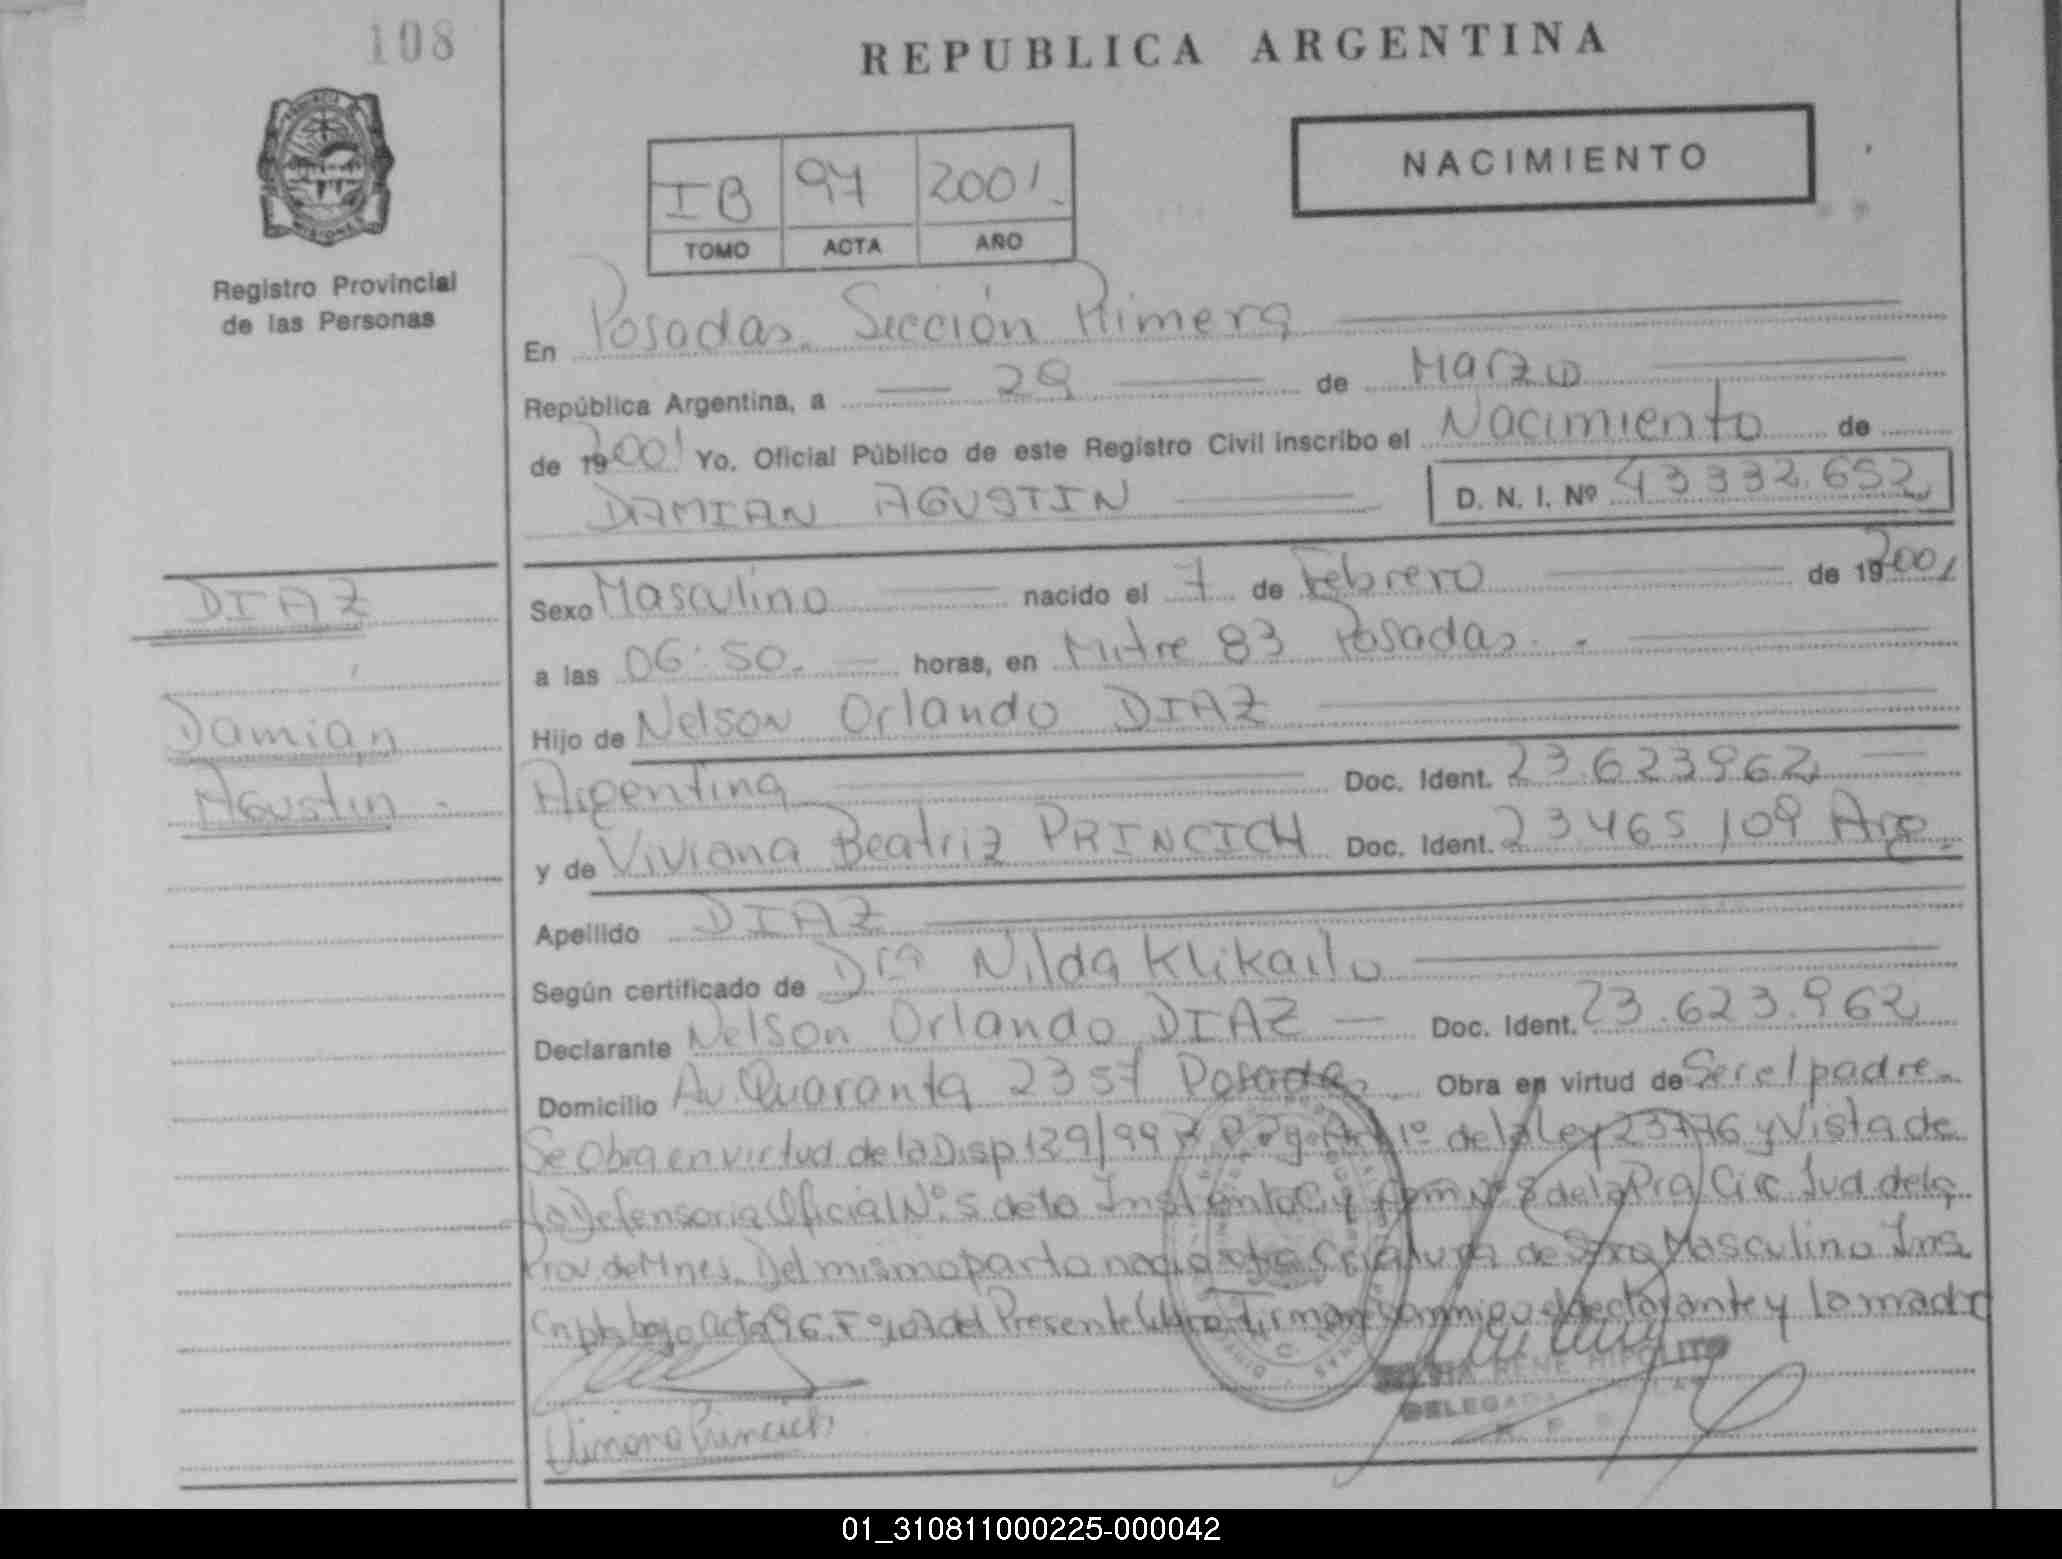 108
REPUBLICA ARGENTINA
NACIMIENTO
IB 97 2001.
TOMO ACTA AÑO
MISIONES
Registro Provincial
de las Personas
En Posadas. Sección Primera
República Argentina, a 29 de Marzo
de 192001 Yo. Oficial Público de este Registro Civil inscribo el Nacimiento de
DAMIAN AGUSTIN D. N. I. Nº 43332.652
DIAZ
Damián
Agustin
Sexo Masculino nacido el 7 de Febrero de 192001
a las 06:50. horas, en Mitre 83 Posadas.
Hijo de Nelson Orlando DIAZ
Argentina Doc. Ident. 23.623962
y de Viviana Beatriz PRINCICH Doc. Ident. 23465109 Arg.
Apellido DIAZ
Según certificado de Dra Nilda Klikailo
Declarante Nelson Orlando DIAZ Doc. Ident. 23.623.962
Domicilio Av. Quaranta 2357 Posadas Obra en virtud de Ser el padre.
Se Obra en virtud de la Disp 129/99 1º de la Ley 23776 y Vista de
la Defensoria Oficial Nº 5 de la Inst en lo C y Com Nº 5 de la Pra Circ Jud de la
Prov de Mnes. Del mismo parto nació otra Criatura de Sexo Masculino Ins
cripta bajo acta 96 Fº 107 del Presente Libro Firman conmigo el declarante y la madre
Viviana Princich
RENE HIPOLITO
DELEGADA
01_310811000225-000042